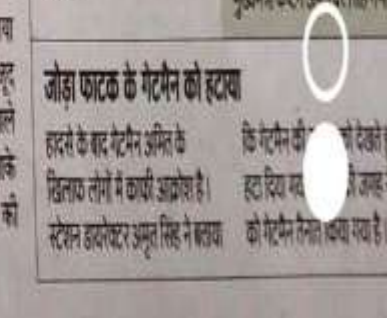 जोड़ा फाटक के गेटमैन को हटाया
हादसे के बाद गेटमैन अमित के
खिलाफ लोगों में काफी आक्रोश है।
स्टेशन डायरेक्टर अमृत सिंह ने बताया
कि गेटमैन की को देखते
हटा दिया गया की जगह
को गेटमैन तैनात किया गया है।